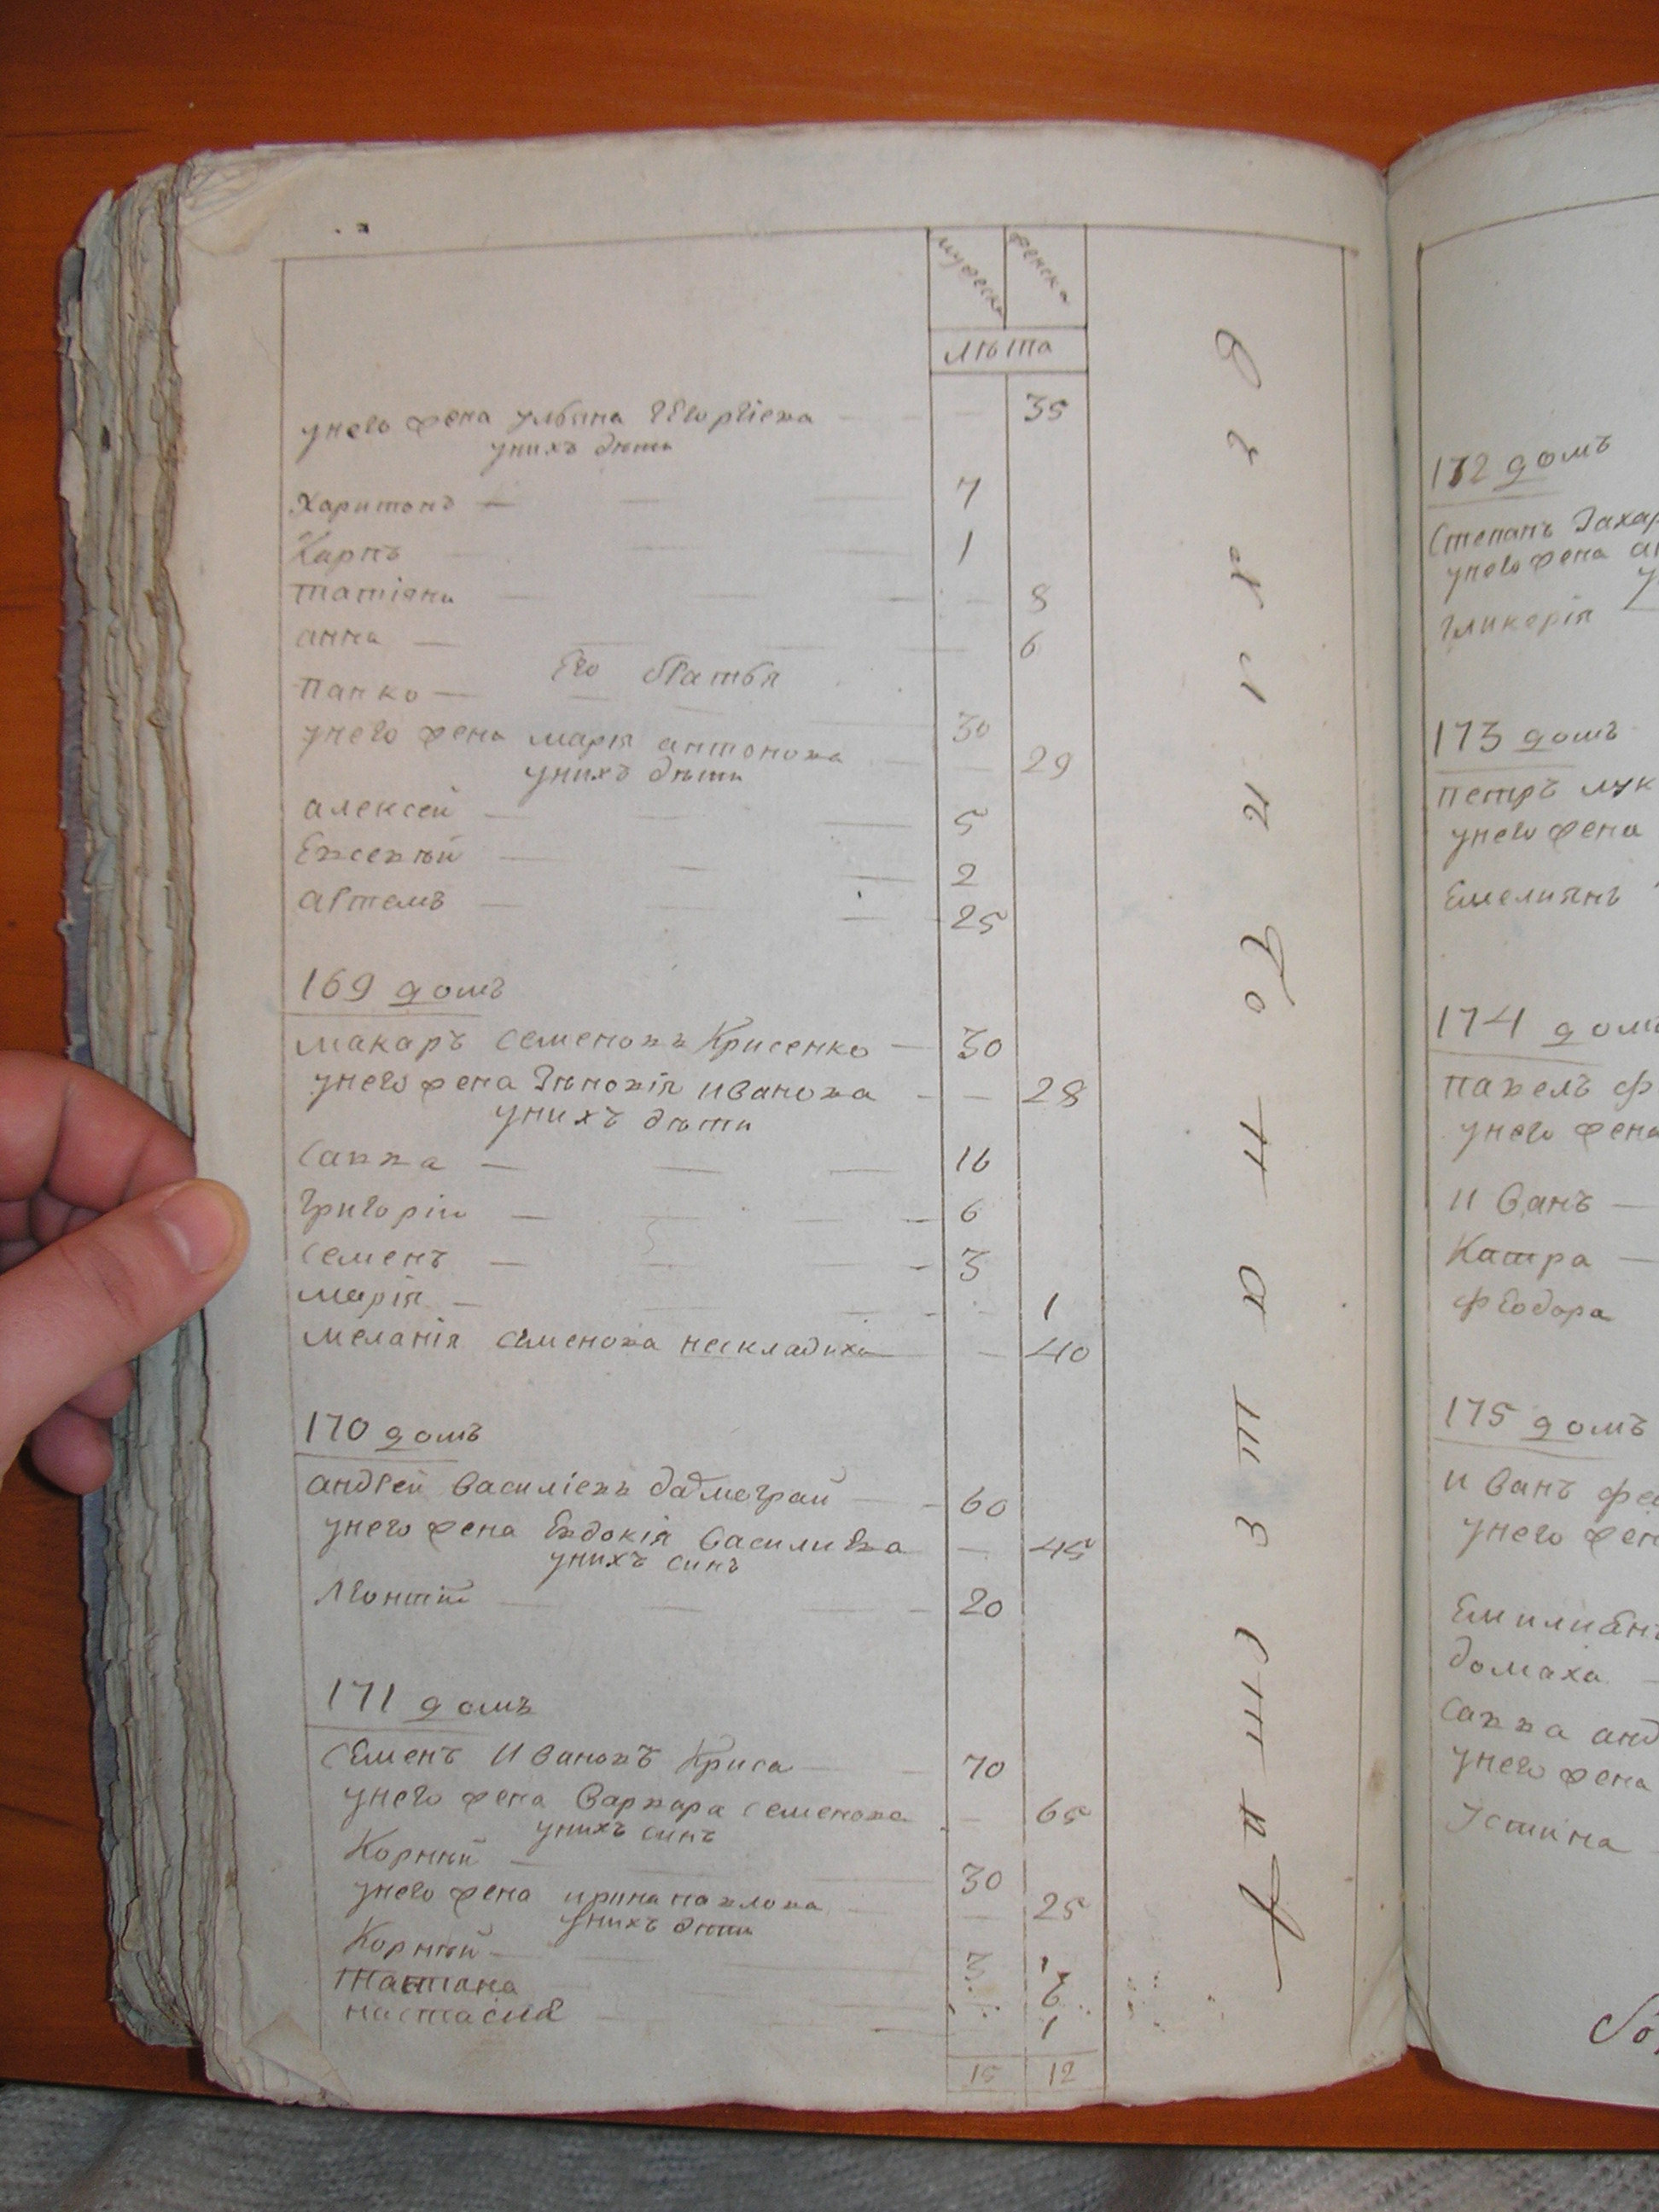 мужеска женска
лѣта
унего жена улбяна георгіева 35
унихъ дѣти
Харитонъ 7
Карпъ 1
татіяна 8
анна 6
Его братья
Павко 30
унего жена марія антонова 29
унихъ дѣти
алексей 5
Евсевѣй 2
артемъ 25
169 домъ
макаръ семеновъ Крисенко 30
унего жена Зѣновія Иванова 28
унихъ дѣти
Савва 16
Григорій 6
семенъ 3
марія 1
меланія семенова нескладиха 40
170 домъ
андрей Василіевъ 60
унего жена Евдокія Василива 45
унихъ синъ
Леонтій 20
171 домъ
Семенъ Ивановъ Криса 70
унего жена Варвара семенова 65
унихъ синъ
Корнѣй 30
унего жена ирина павлова 25
унихъ дѣти
Корнѣй 3
тантяна 6
настасия 1
15 12
172 домъ
Степанъ Захар
унего жена
гликерія
173 домъ
петръ лук
унего жена
Емелиянъ
174 домъ
павелъ ф
унего жена
Иванъ
Катра
феодора
175 домъ
Иванъ фе
унего жен
Емилиянъ
домаха
Савва анд
унего жена
Устина